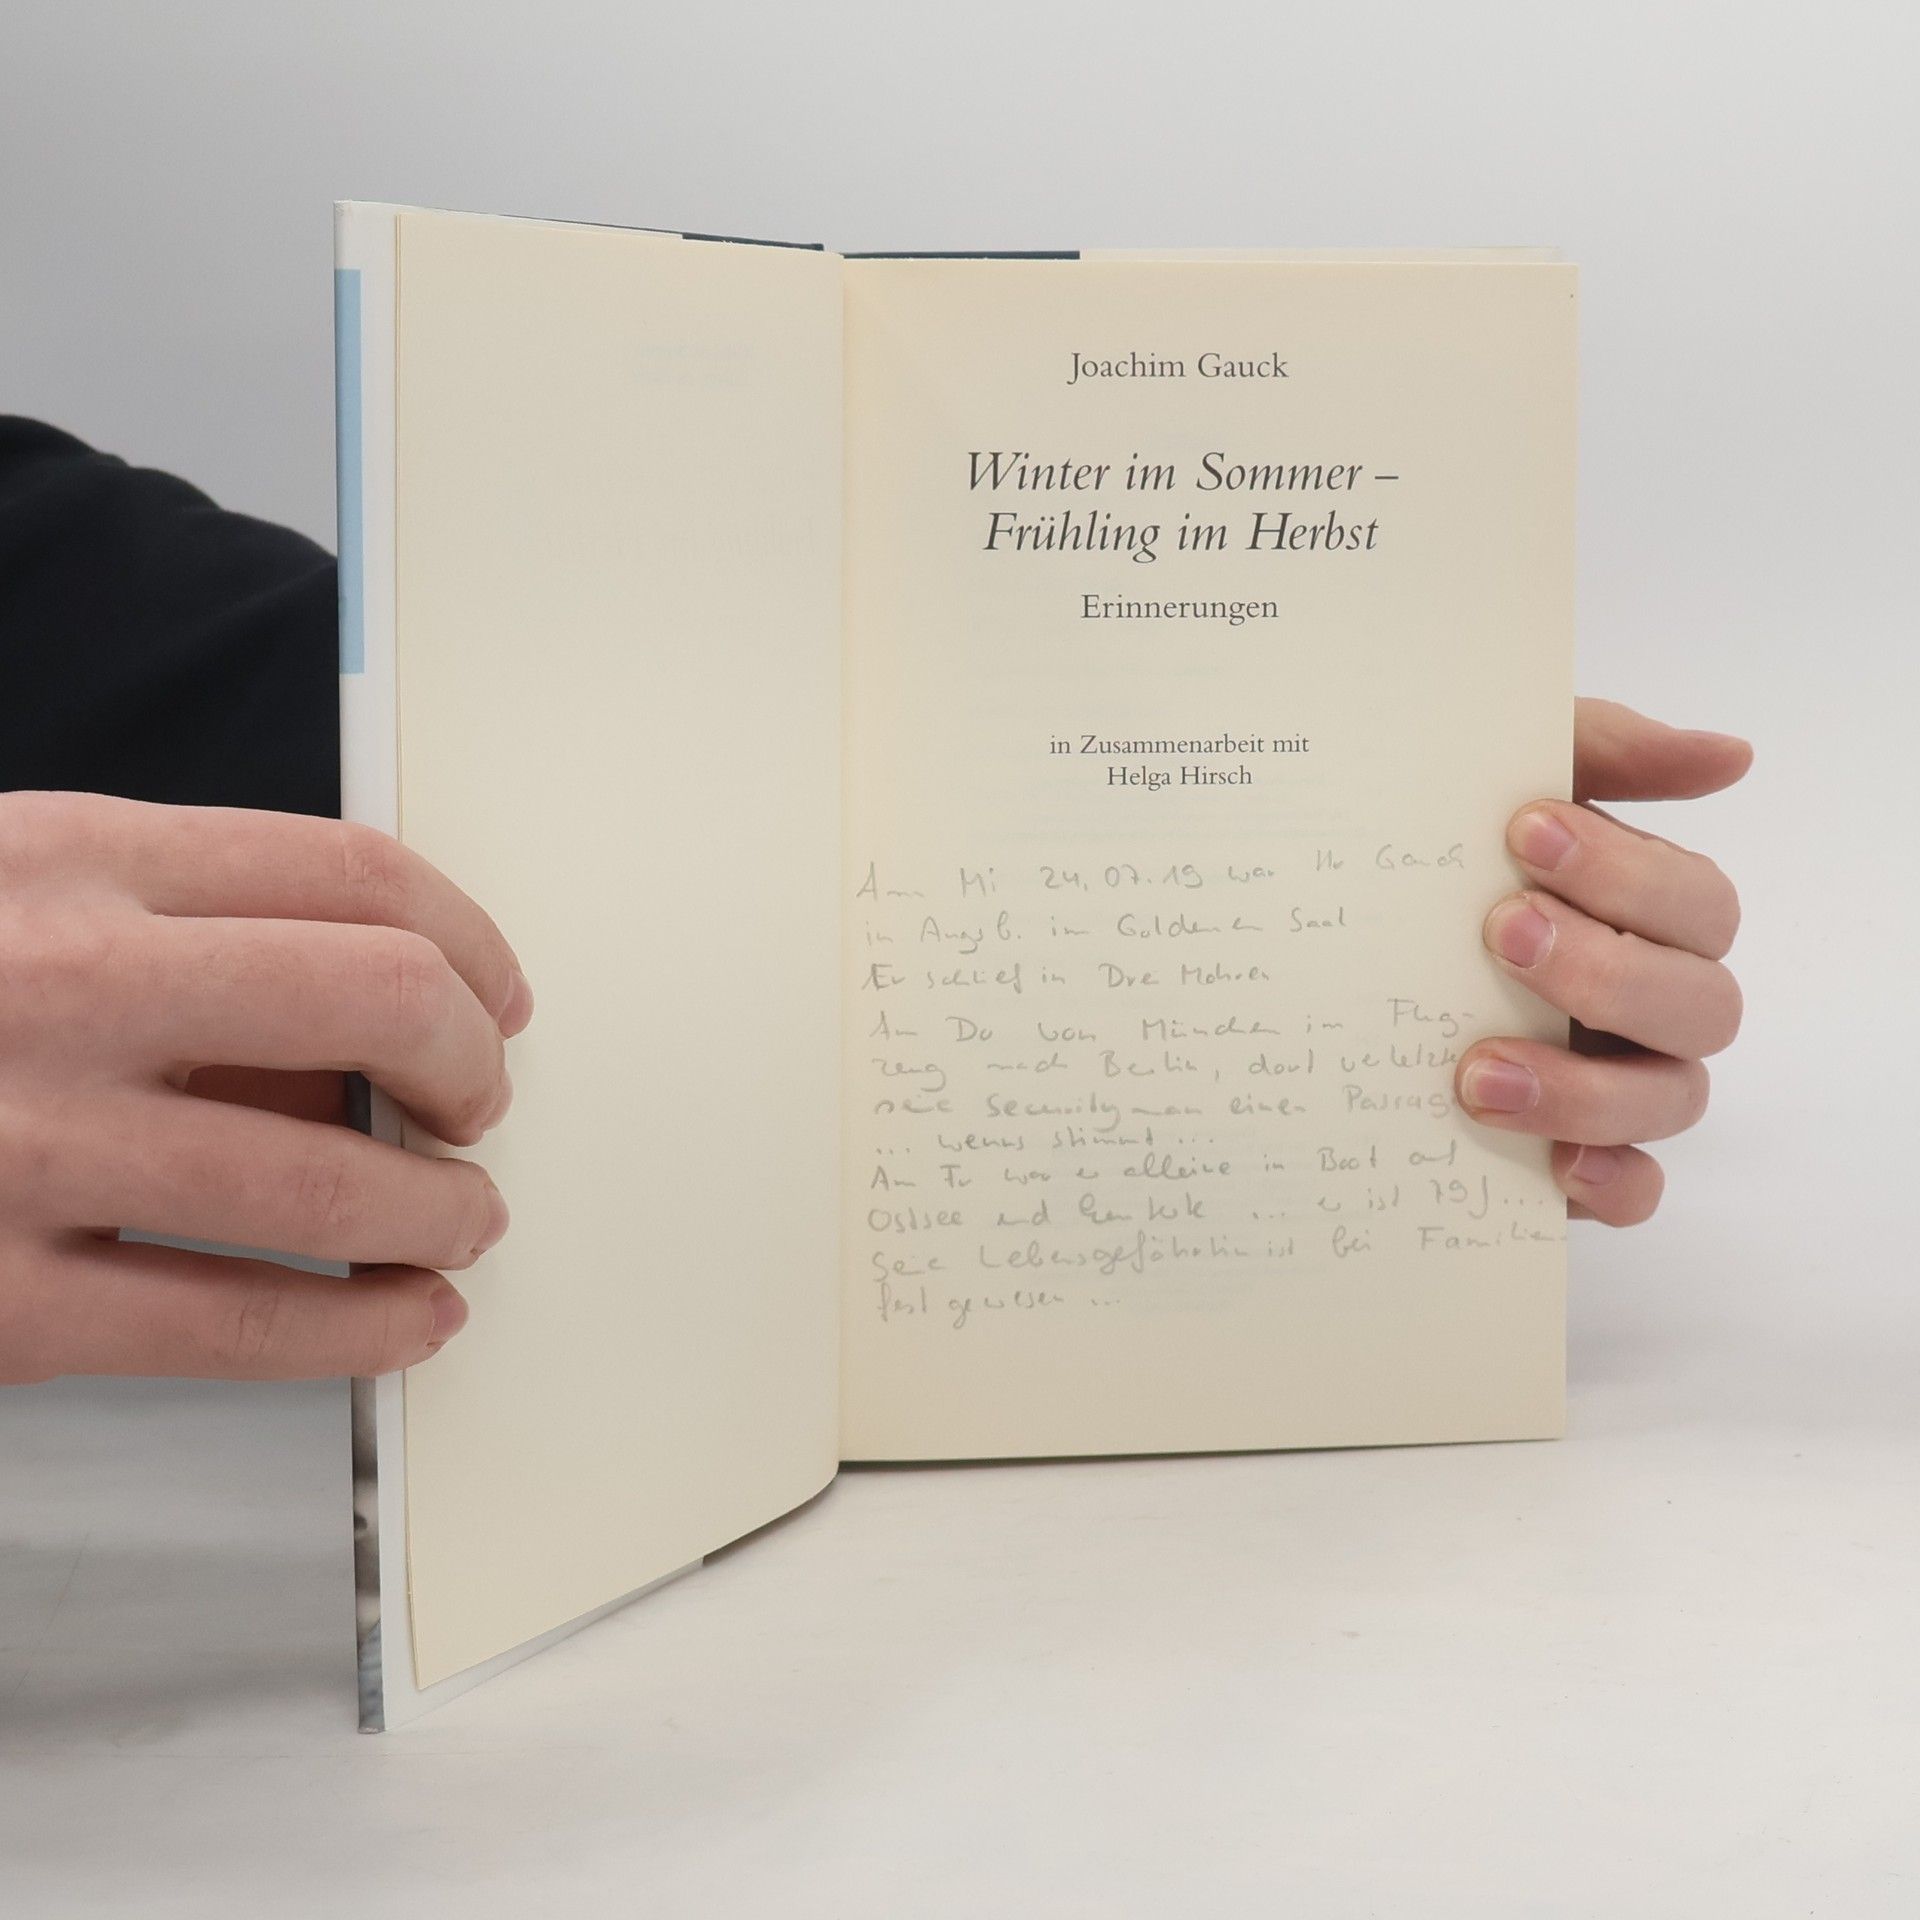 Joachim Gauck
Winter im Sommer –
Frühling im Herbst
Erinnerungen
in Zusammenarbeit mit
Helga Hirsch
Am Mi 24.07.19 war Hr Gauck
in Augsb. im Goldenen Saal
Er schlief in Drei Mohren
Am Do von München im Flug-
zeug nach Berlin, dort verletzte
seie Securityman einen
... wenns stimmt ...
Am Fr war er alleine in Boot auf
Ostsee und kenterte ... er ist 79 J...
Seie Lebensgefährtin ist bei Familien-
fest gewesen ...